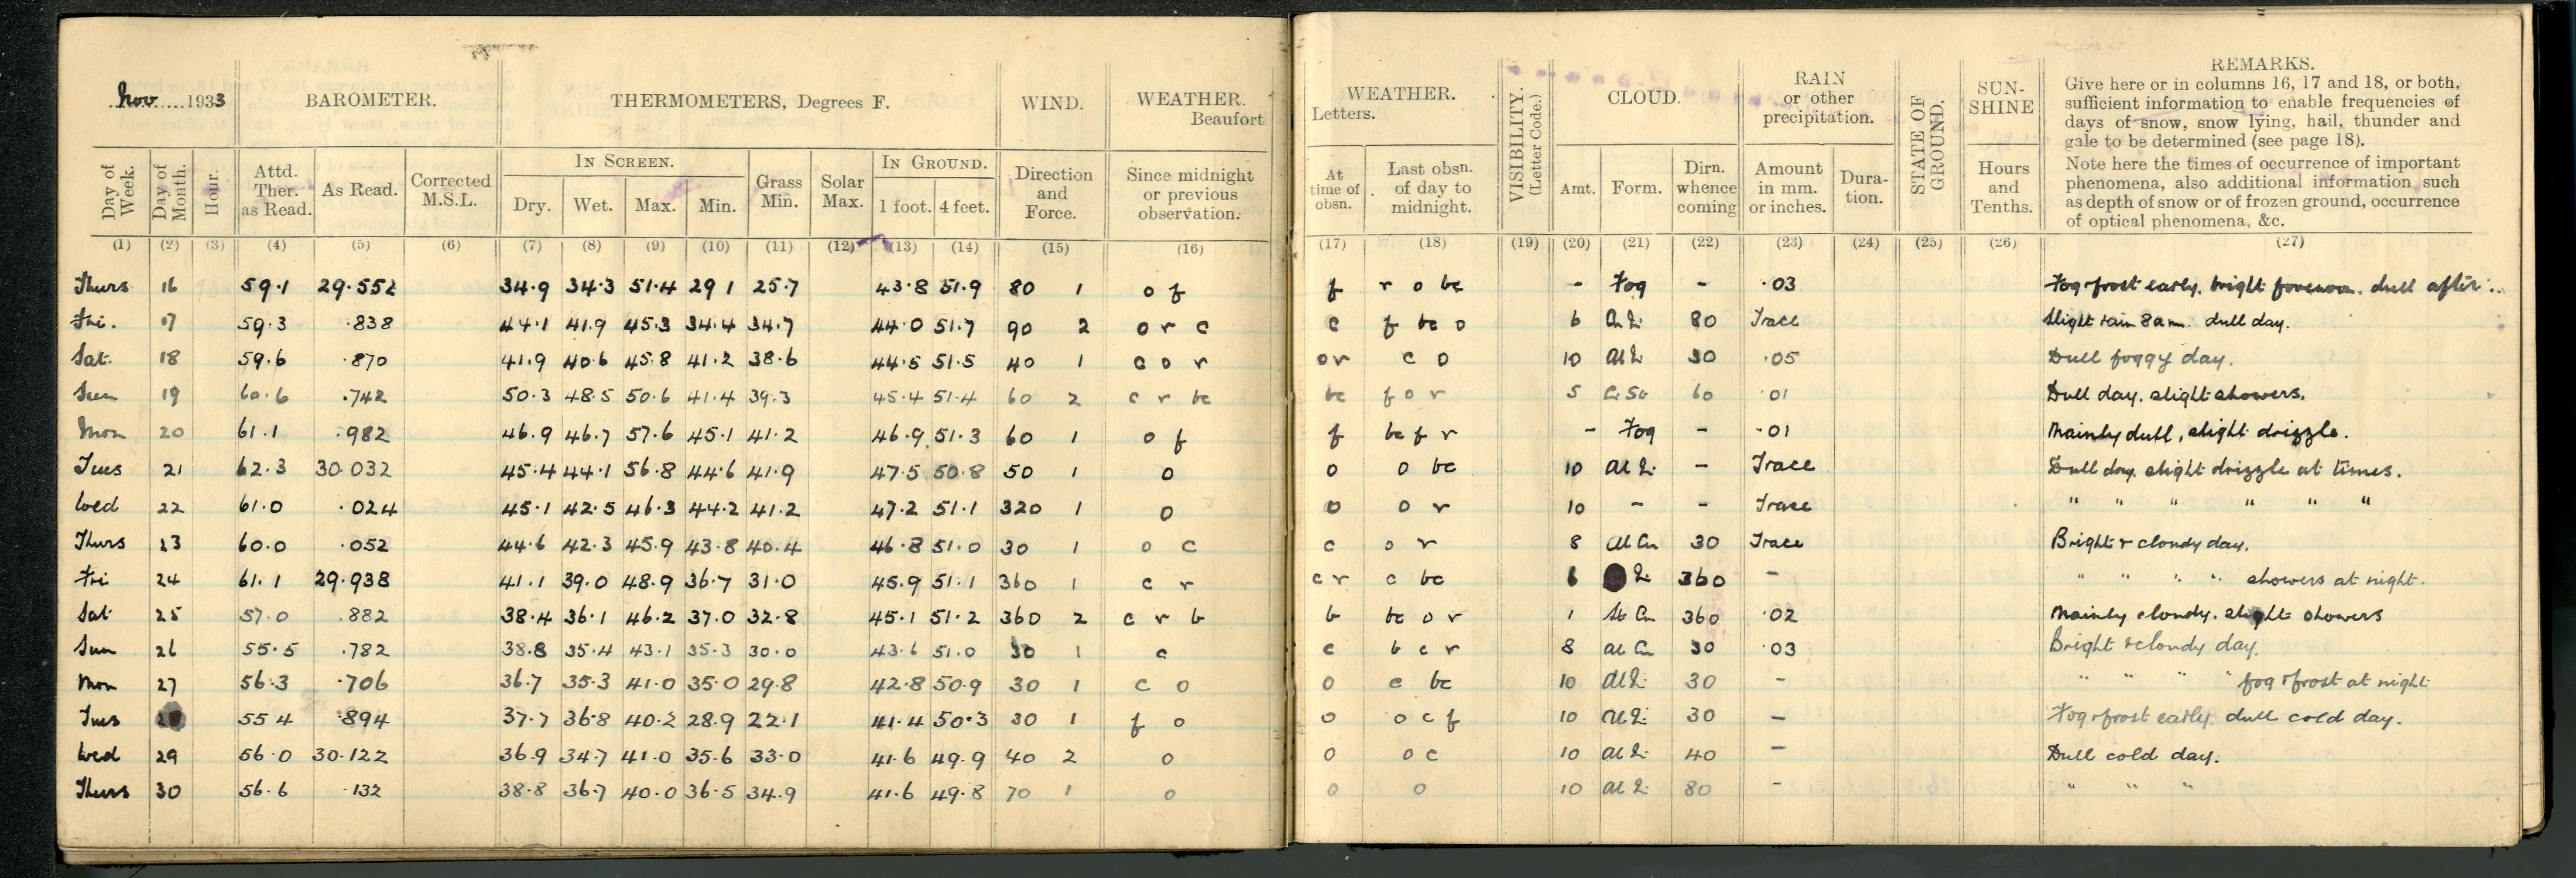 Nov 1933 BAROMETER. THERMOMETERS, Degrees F. WIND. WEATHER. Beaufort
Day of Week. Day of Month. Hour. Attd. Ther. as Read. As Read. Corrected M.S.L. IN SCREEN. Dry. Wet. Max. Min. Grass Min. Solar Max. IN GROUND. 1 foot. 4 feet. Direction and Force. Since midnight or previous observation.
(1) (2) (3) (4) (5) (6) (7) (8) (9) (10) (11) (12) (13) (14) (15) (16)
WEATHER. Letters. VISIBILITY. (Letter Code.) CLOUD. RAIN or other precipitation. STATE OF GROUND. SUN-SHINE REMARKS.
Give here or in columns 16, 17 and 18, or both,
sufficient information to enable frequencies of
days of snow, snow lying, hail, thunder and
gale to be determined (see page 18).
Note here the times of occurrence of important
phenomena, also additional information such
as depth of snow or of frozen ground, occurrence
of optical phenomena, &c.
At time of obsn. Last obsn. of day to midnight. Amt. Form. Dirn. whence coming Amount in mm. or inches. Dura-tion. Hours and Tenths.
(17) (18) (19) (20) (21) (22) (23) (24) (25) (26) (27)
Thurs 16 59.1 29.552 34.9 34.3 51.4 29 1 25.7 43.8 51.9 80 1 o f f r o bc - Fog - .03 Fog & frost early. bright forenoon. dull after..
Fri. 17 59.3 .838 44.1 41.9 45.3 34.4 34.7 44.0 51.7 90 2 o r c c f bc o 6 80 Trace Slight rain 8 a.m. dull day.
Sat. 18 59.6 .870 41.9 40.6 45.8 41.2 38.6 44.5 51.5 40 1 c o r or c o 10 30 .05 Dull foggy day.
Sun 19 60.6 .742 50.3 48.5 50.6 41.4 39.3 45.4 51.4 60 2 c r bc bc f o r 5 60 .01 Dull day. slight showers.
Mon 20 61.1 .982 46.9 46.7 57.6 45.1 41.2 46.9 51.3 60 1 o f f bc f r - Fog - .01 Mainly dull, slight drizzle.
Tues 21 62.3 30.032 45.4 44.1 56.8 44.6 41.9 47.5 50.8 50 1 o o o bc 10 - Trace Dull day. slight drizzle at times.
Wed 22 61.0 .024 45.1 42.5 46.3 44.2 41.2 47.2 51.1 320 1 o o o r 10 - - Trace " " " " " "
Thurs 23 60.0 .052 44.6 42.3 45.9 43.8 40.4 46.8 51.0 30 1 o c c o r 8 Al Cu 30 Trace Bright & cloudy day.
Fri 24 61.1 29.938 41.1 39.0 48.9 36.7 31.0 45.9 51.1 360 1 c r c r c bc 6 360 - " " " " showers at night.
Sat 25 57.0 .882 38.4 36.1 46.2 37.0 32.8 45.1 51.2 360 2 c r b b bc o r 1 St Cu 360 .02 Mainly cloudy. slight showers
Sun 26 55.5 .782 38.8 35.4 43.1 35.3 30.0 43.6 51.0 30 1 c c b c r 8 Al Cu 30 .03 Bright & cloudy day.
Mon 27 56.3 .706 36.7 35.3 41.0 35.0 29.8 42.8 50.9 30 1 c o o c bc 10 30 - " " " " fog & frost at night
Tues 28 55 4 .894 37.7 36.8 40.2 28.9 22.1 41.4 50.3 30 1 f o o o c f 10 30 - Fog & frost early. dull cold day.
Wed 29 56.0 30.122 36.9 34.7 41.0 35.6 33.0 41.6 49.9 40 2 o o o c 10 40 - Dull cold day.
Thurs 30 56.6 .132 38.8 36.7 40.0 36.5 34.9 41.6 49.8 70 1 o o o 10 80 - " " "